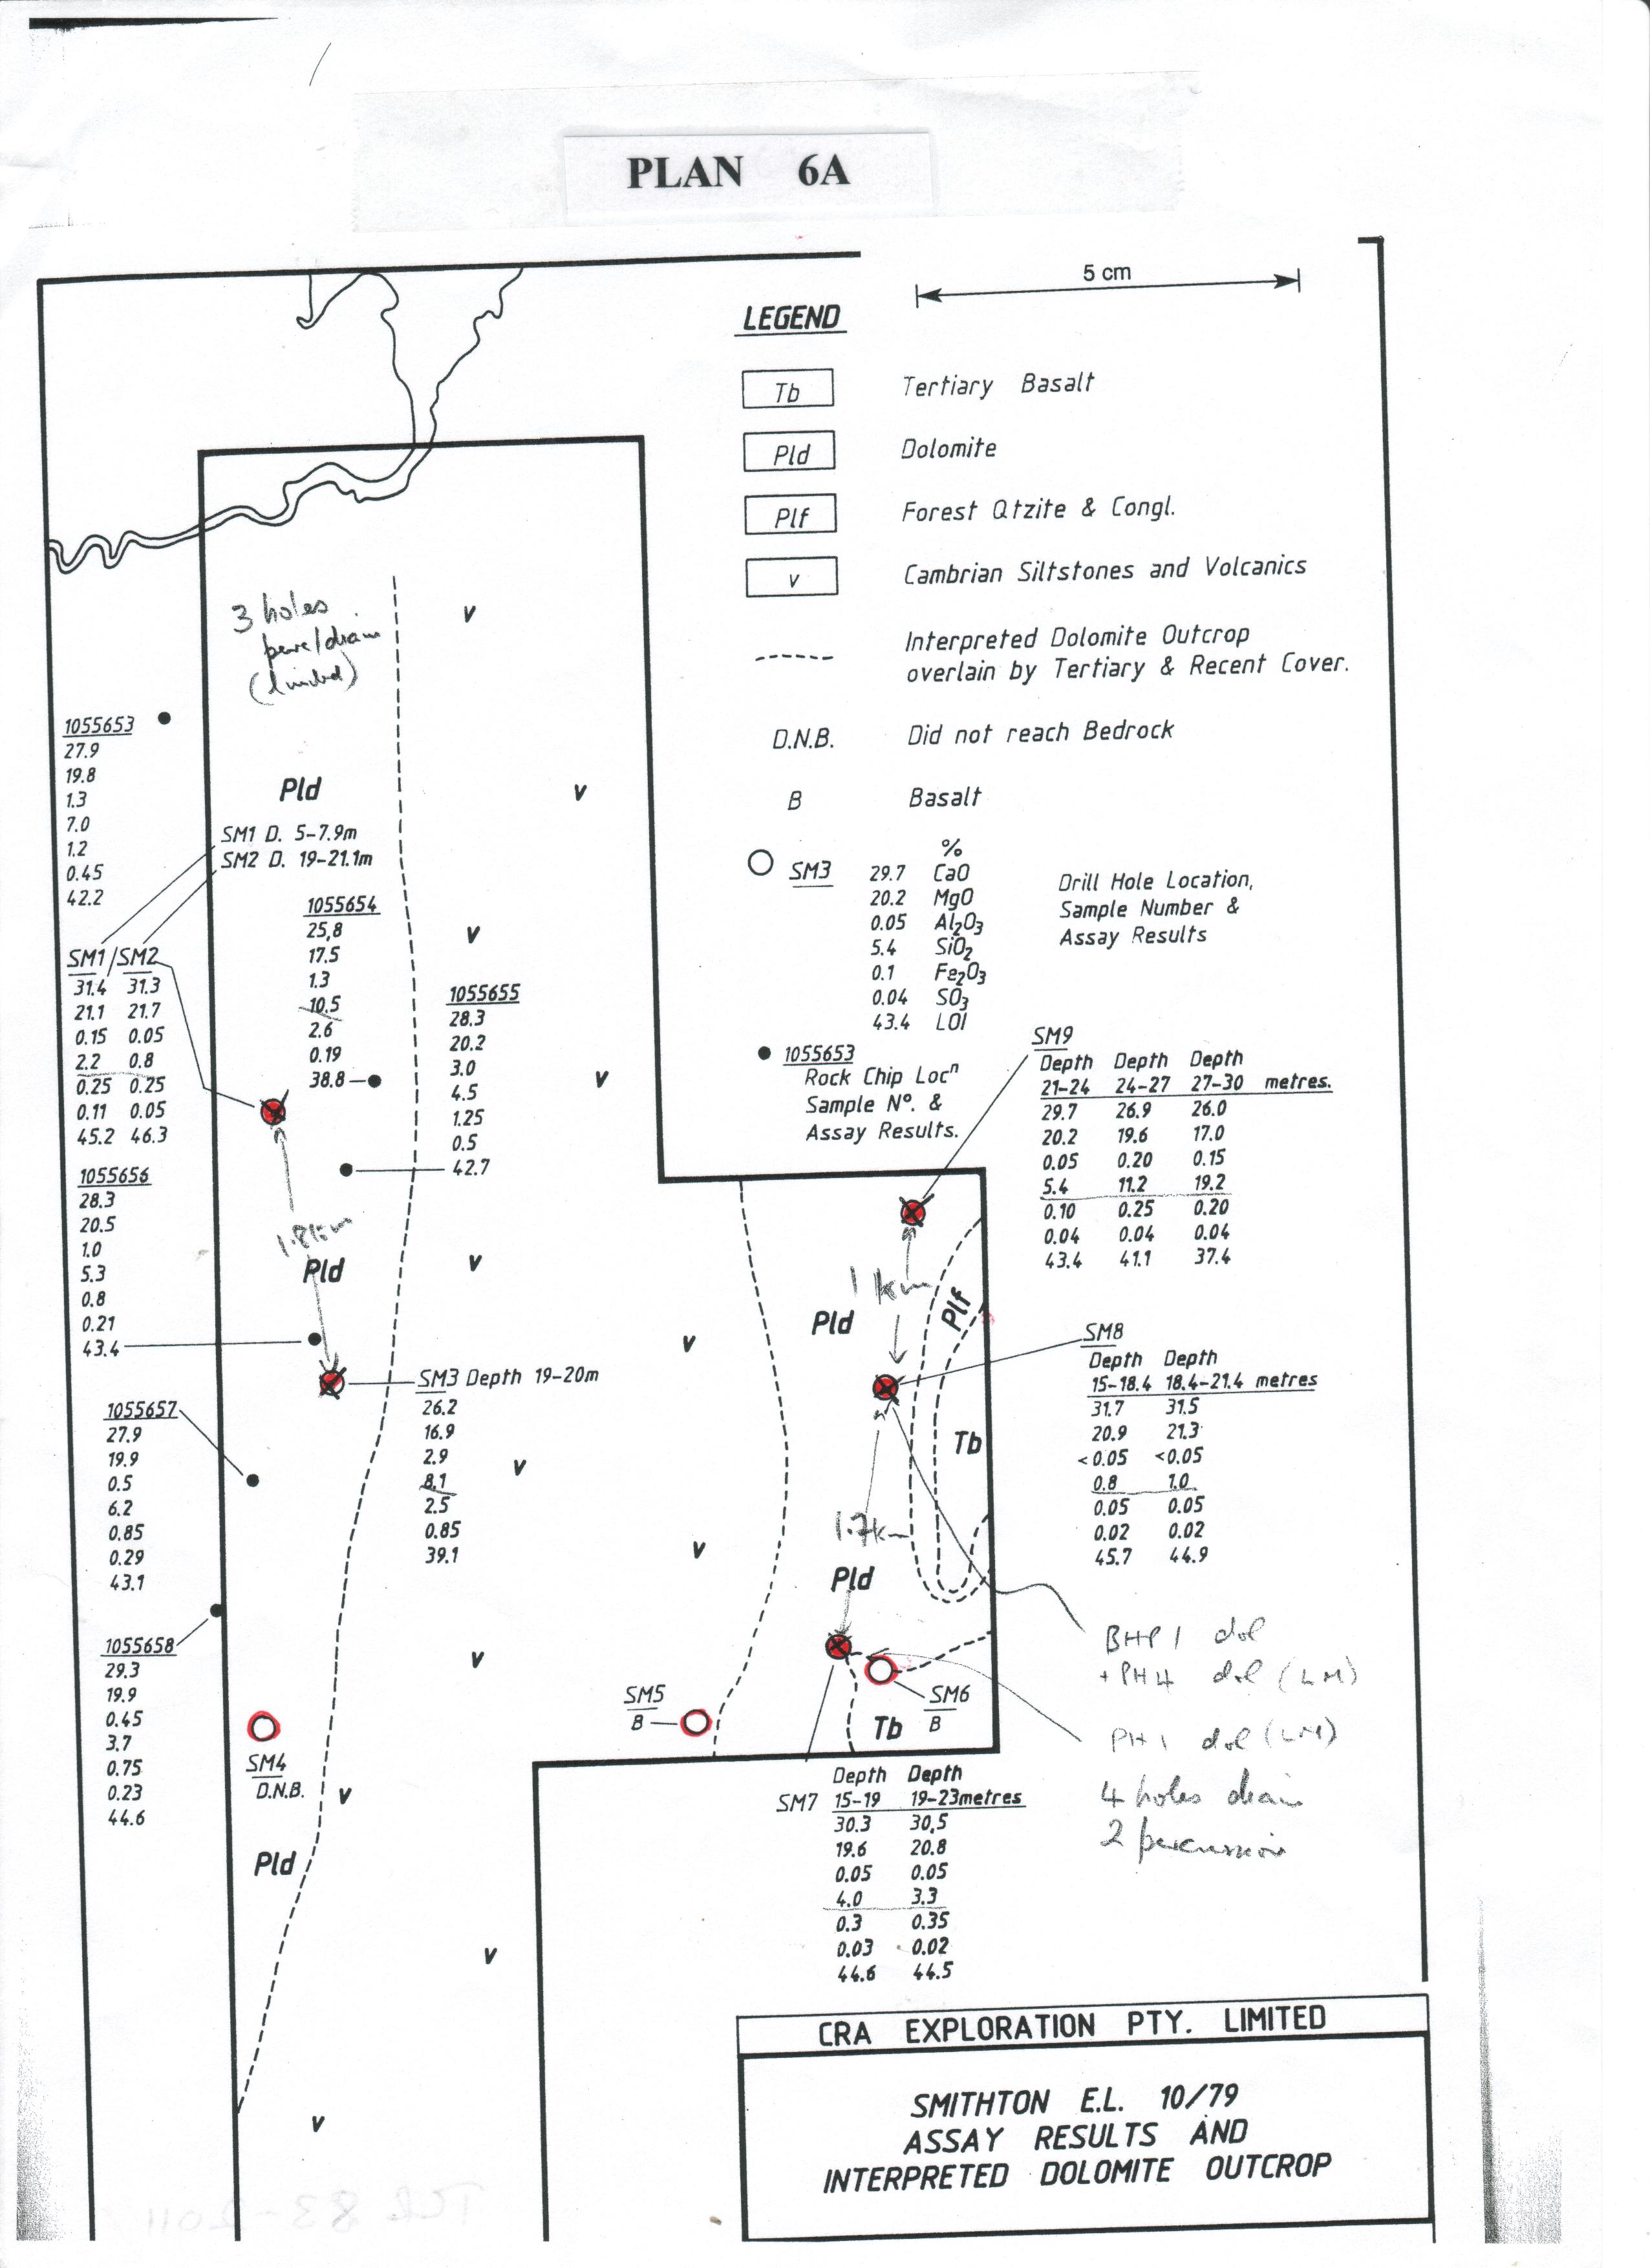 PLAN 6A
5 cm
LEGEND
Tb Tertiary Basalt
Pld Dolomite
Plf Forest Qtzite & Congl.
v Cambrian Siltstones and Volcanics
Interpreted Dolomite Outcrop
overlain by Tertiary & Recent Cover.
D.N.B. Did not reach Bedrock
B Basalt
%
SM3 29.7 CaO
20.2 MgO
0.05 Al₂O₃
5.4 SiO₂
0.1 Fe₂O₃
0.04 SO₃
43.4 LOI
Drill Hole Location,
Sample Number &
Assay Results
1055653
Rock Chip Locⁿ
Sample Nº. &
Assay Results.
3 holes
(limited)
v
1055653
27.9
19.8
1.3
7.0
1.2
0.45
42.2
Pld
v
SM1 D. 5-7.9m
SM2 D. 19-21.1m
1055654
25,8
17.5
1.3
10.5
2.6
0.19
38.8
v
SM1/SM2
31.4 31.3
21.1 21.7
0.15 0.05
2.2 0.8
0.25 0.25
0.11 0.05
45.2 46.3
1055655
28.3
20.2
3.0
4.5
1.25
0.5
42.7
v
1055656
28.3
20.5
1.0
5.3
0.8
0.21
43.4
1.8km
Pld
v
SM3 Depth 19-20m
26.2
16.9
2.9
8.1
2.5
0.85
39.1
v
1055657
27.9
19.9
0.5
6.2
0.85
0.29
43.1
v
1055658
29.3
19.9
0.45
3.7
0.75
0.23
44.6
SM4
D.N.B.
v
Pld
v
v
SM9
Depth Depth Depth
21-24 24-27 27-30 metres.
29.7 26.9 26.0
20.2 19.6 17.0
0.05 0.20 0.15
5.4 11.2 19.2
0.10 0.25 0.20
0.04 0.04 0.04
43.4 41.1 37.4
1 km
Pld
Plf
v
SM8
Depth Depth
15-18.4 18.4-21.4 metres
31.7 31.5
20.9 21.3
<0.05 <0.05
0.8 1.0
0.05 0.05
0.02 0.02
45.7 44.9
Tb
1.7km
v
Pld
BHP1 dol
+ PH4 dol (LM)
PH1 dol (LM)
4 holes
2 percussion
SM5
B
SM6
B
Tb
SM7
Depth Depth
15-19 19-23metres
30.3 30,5
19.6 20.8
0.05 0.05
4.0 3.3
0.3 0.35
0.03 0.02
44.6 44.5
CRA EXPLORATION PTY. LIMITED
SMITHTON E.L. 10/79
ASSAY RESULTS AND
INTERPRETED DOLOMITE OUTCROP